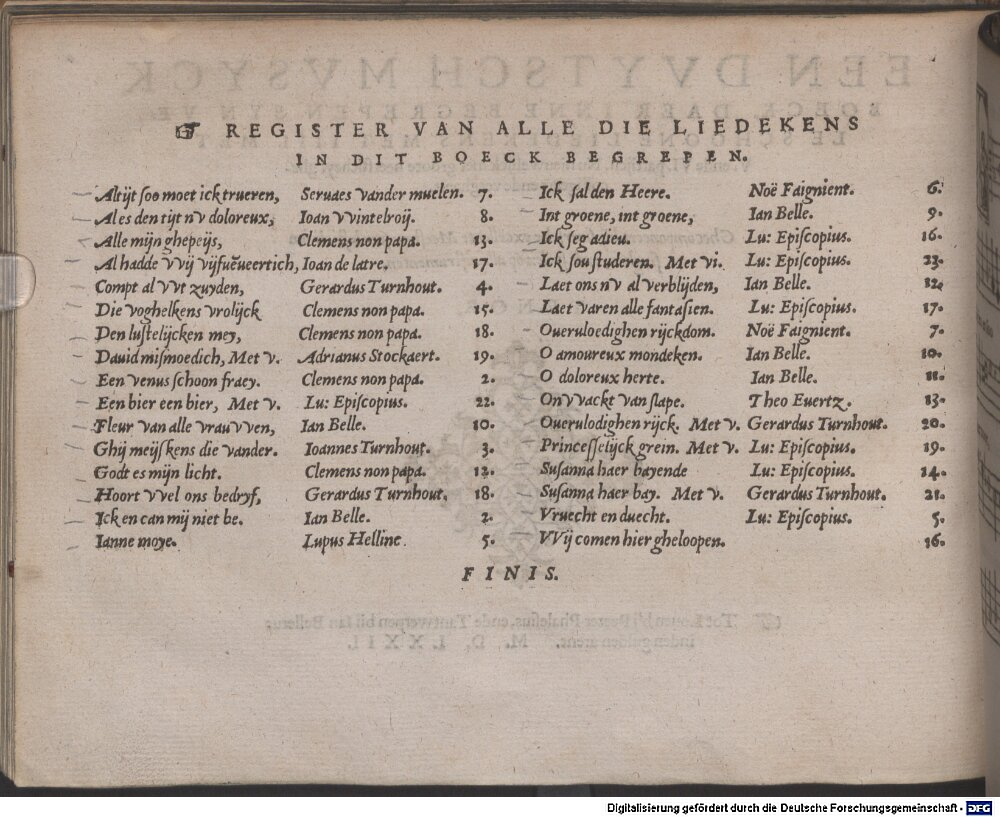 ☞ REGISTER VAN ALLE DIE LIEDEKENS
IN DIT BOECK BEGREPEN.
Altijt soo moet ick trueren, Seruaes vander muelen. 7.
Al es den tijt nv doloreux, Ioan VVintelroij. 8.
Alle mijn ghepeijs, Clemens non papa. 13.
Al hadde VVij vijfuẽueertich, Ioan de latre. 17.
Compt al VVt zuyden, Gerardus Turnhout. 4.
Die voghelkens vrolijck Clemens non papa. 15.
Den lustelijcken mey, Clemens non papa. 18.
Dauid mismoedich, Met v. Adrianus Stockaert. 19.
Een venus schoon fraey. Clemens non papa. 2.
Een bier een bier, Met v. Lu: Episcopius. 22.
Fleur van alle vrauvven, Ian Belle. 10.
Ghij meijskens die vander. Ioannes Turnhout. 3.
Godt es mijn licht. Clemens non papa. 12.
Hoort VVel ons bedryf, Gerardus Turnhout. 18.
Ick en can mij niet be. Ian Belle. 2.
Ianne moye. Lupus Helline. 5.
Ick sal den Heere. Noë Faignient. 6.
Int groene, int groene, Ian Belle. 9.
Ick seg adieu. Lu: Episcopius. 16.
Ick sou studeren. Met vi. Lu: Episcopius. 23.
Laet ons nv al verblijden, Ian Belle. 12.
Laet varen alle fantasien. Lu: Episcopius. 17.
Oueruloedighen rijckdom. Noë Faignient. 7.
O amoureux mondeken. Ian Belle. 10.
O doloreux herte. Ian Belle. 11.
OnVVackt van slape. Theo Euertz. 13.
Ouerulodighen rijck. Met v. Gerardus Turnhout. 20.
Princesselijck grein. Met v. Lu: Episcopius. 19.
Susanna haer bayende Lu: Episcopius. 14.
Susanna haer bay. Met v. Gerardus Turnhout. 21.
Vruecht en duecht. Lu: Episcopius. 5.
VVij comen hier gheloopen. 16.
FINIS.
Digitalisierung gefördert durch die Deutsche Forschungsgemeinschaft - DFG